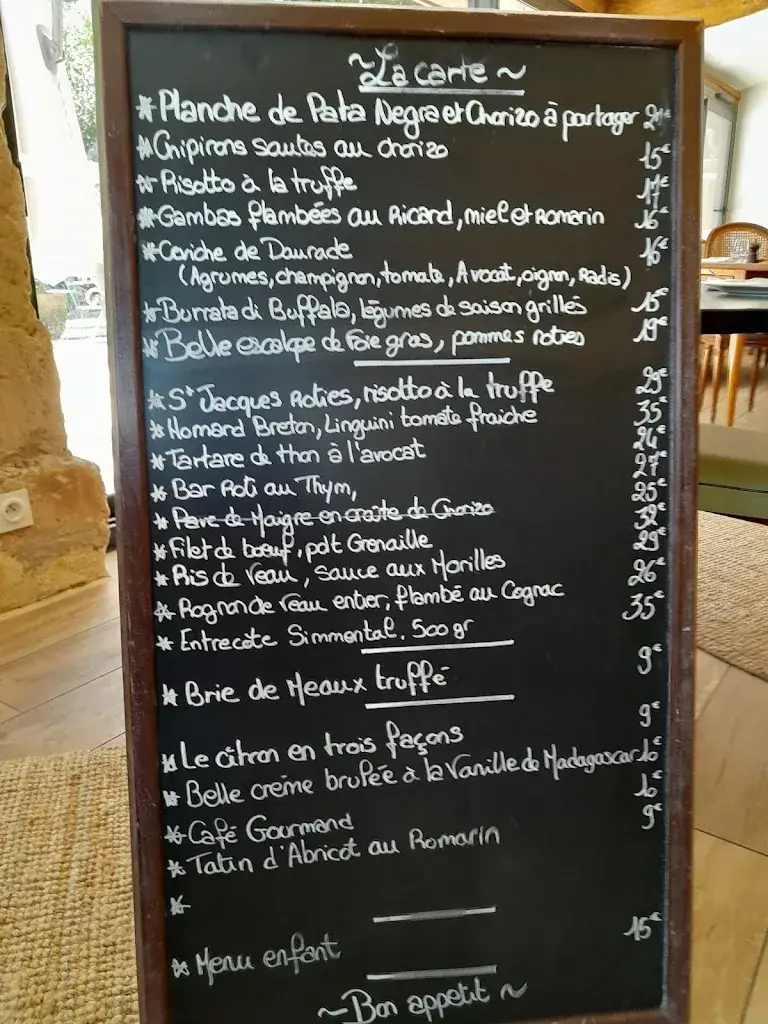 ~La carte~
* Planche de Pata Negra et Chorizo à partager
* Chipirons sautés au chorizo 15€
* Risotto à la truffe 17€
* Gambas flambées au Ricard, miel et Romarin 16€
* Ceviche de Daurade 16€
(Agrumes, champignon, tomate, Avocat, oignon, Radis)
* Burrata di Buffala, légumes de saison grillés 15€
* Belle escalope de Foie gras, pommes roties 19€
* St Jacques Roties, risotto à la truffe 29€
* Homard Breton, Linguini tomate fraiche 35€
* Tartare de thon à l'avocat 24€
* Bar Roti au Thym, 27€
* Pave de Maigre en croûte de Chorizo 25€
* Filet de boeuf, pdt Grenaille 32€
* Ris de Veau, sauce aux Morilles 29€
* Rognon de veau entier, flambé au Cognac 26€
* Entrecôte Simmental. 500gr 35€
* Brie de Meaux truffé 9€
* Le citron en trois façons 9€
* Belle crème brulée à la Vanille de Madagascar 10€
* Café Gourmand 10€
* Tatin d'Abricot au Romarin 9€
*
* Menu enfant 15€
~Bon appetit~